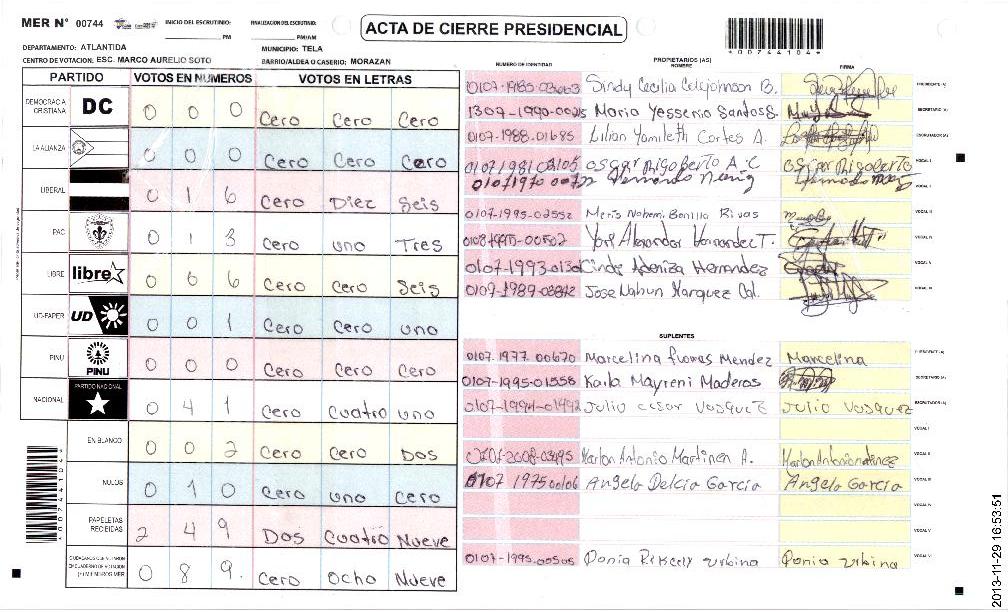 MER N° 00744
INICIO DEL ESCRUTINIO: PM
FINALIZACION DEL ESCRUTINIO: PM/AM
ACTA DE CIERRE PRESIDENCIAL
DEPARTAMENTO: ATLANTIDA
MUNICIPIO: TELA
CENTRO DE VOTACION: ESC. MARCO AURELIO SOTO
BARRIO/ALDEA O CASERIO: MORAZAN
PARTIDO VOTOS EN NUMEROS VOTOS EN LETRAS
DEMOCRACIA CRISTIANA DC 0 0 0 Cero Cero Cero
LA ALIANZA 0 0 0 Cero Cero Cero
LIBERAL 0 1 6 Cero Diez Seis
PAC 0 1 3 Cero uno Tres
LIBRE libre 0 0 6 Cero Cero Seis
UD-FAPER UD 0 0 1 Cero Cero uno
PINU PINU 0 0 0 Cero Cero Cero
NACIONAL PARTIDO NACIONAL 0 4 1 Cero Cuatro uno
EN BLANCO 0 0 2 Cero Cero Dos
NULOS 0 1 0 Cero uno Cero
PAPELETAS RECIBIDAS 2 4 9 Dos Cuatro Nueve
CIUDADANOS QUE VOTARON EN CUADERNO DE VOTACION (+) MIEMBROS MER 0 8 9. Cero Ocho Nueve
PROPIETARIOS (AS)
NUMERO DE IDENTIDAD NOMBRE FIRMA
Sindy Cecilia B. PRESIDENTE (A)
Maria Yessenia Santos S. SECRETARIO (A)
0107-1988-01685 Lilian Yamileth Cortes A. ESCRUTADOR (A)
0107 1981 02105 Oscar Rigoberto A.C Oscar Rigoberto VOCAL I
0107 1970
0107-1995-02552 Meris Nohemi Bonilla Rivas
Yori Alexander Hernandez T.
Hernandez
0107-1989-03842 Jose Nahun Marquez
SUPLENTES
0107-1977-00670 Marcelina Mendez Marcelina PRESIDENTE (A)
0107-1995-01558 Karla Mayreni Maderos SECRETARIO (A)
0107-1994-01492 Julio cesar Vasquez Julio Vasquez ESCRUTADOR (A)
VOCAL I
Marlon Antonio Martinez A. VOCAL II
0107 1975 Angela Delcia Garcia Angela Garcia VOCAL III
VOCAL IV
VOCAL V
0107-1995-00505 urbina urbina VOCAL VI
*00744104*
2013-11-29 16:53:51